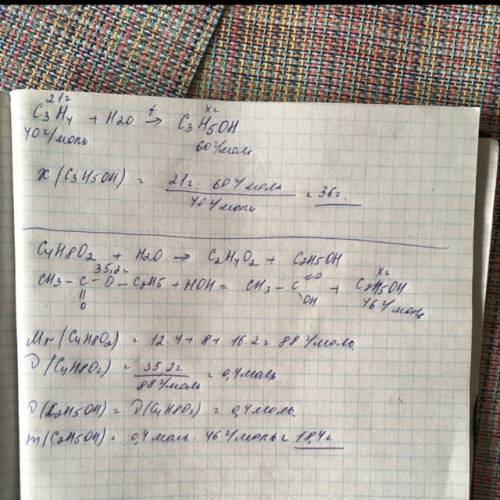 21г хг
C3H4 + H2O t→ C3H5OH
40 г/моль 60 г/моль
х (C3H5OH) = 21г · 60 г/моль / 40 г/моль = 36г.
C4H8O2 + H2O → C2H4O2 + C2H5OH
35,2г хг
CH3 – C – O – C2H5 + HOH = CH3 – C + C2H5OH
|| =O OH 46 г/моль
O
Mr (C4H8O2) = 12·4 + 8 + 16·2 = 88 г/моль.
D (C4H8O2) = 35,2г / 88 г/моль = 0,4 моль
D (C2H5OH) = D (C4H8O2) = 0,4 моль.
m (C2H5OH) = 0,4 моль · 46 г/моль = 18,4 г